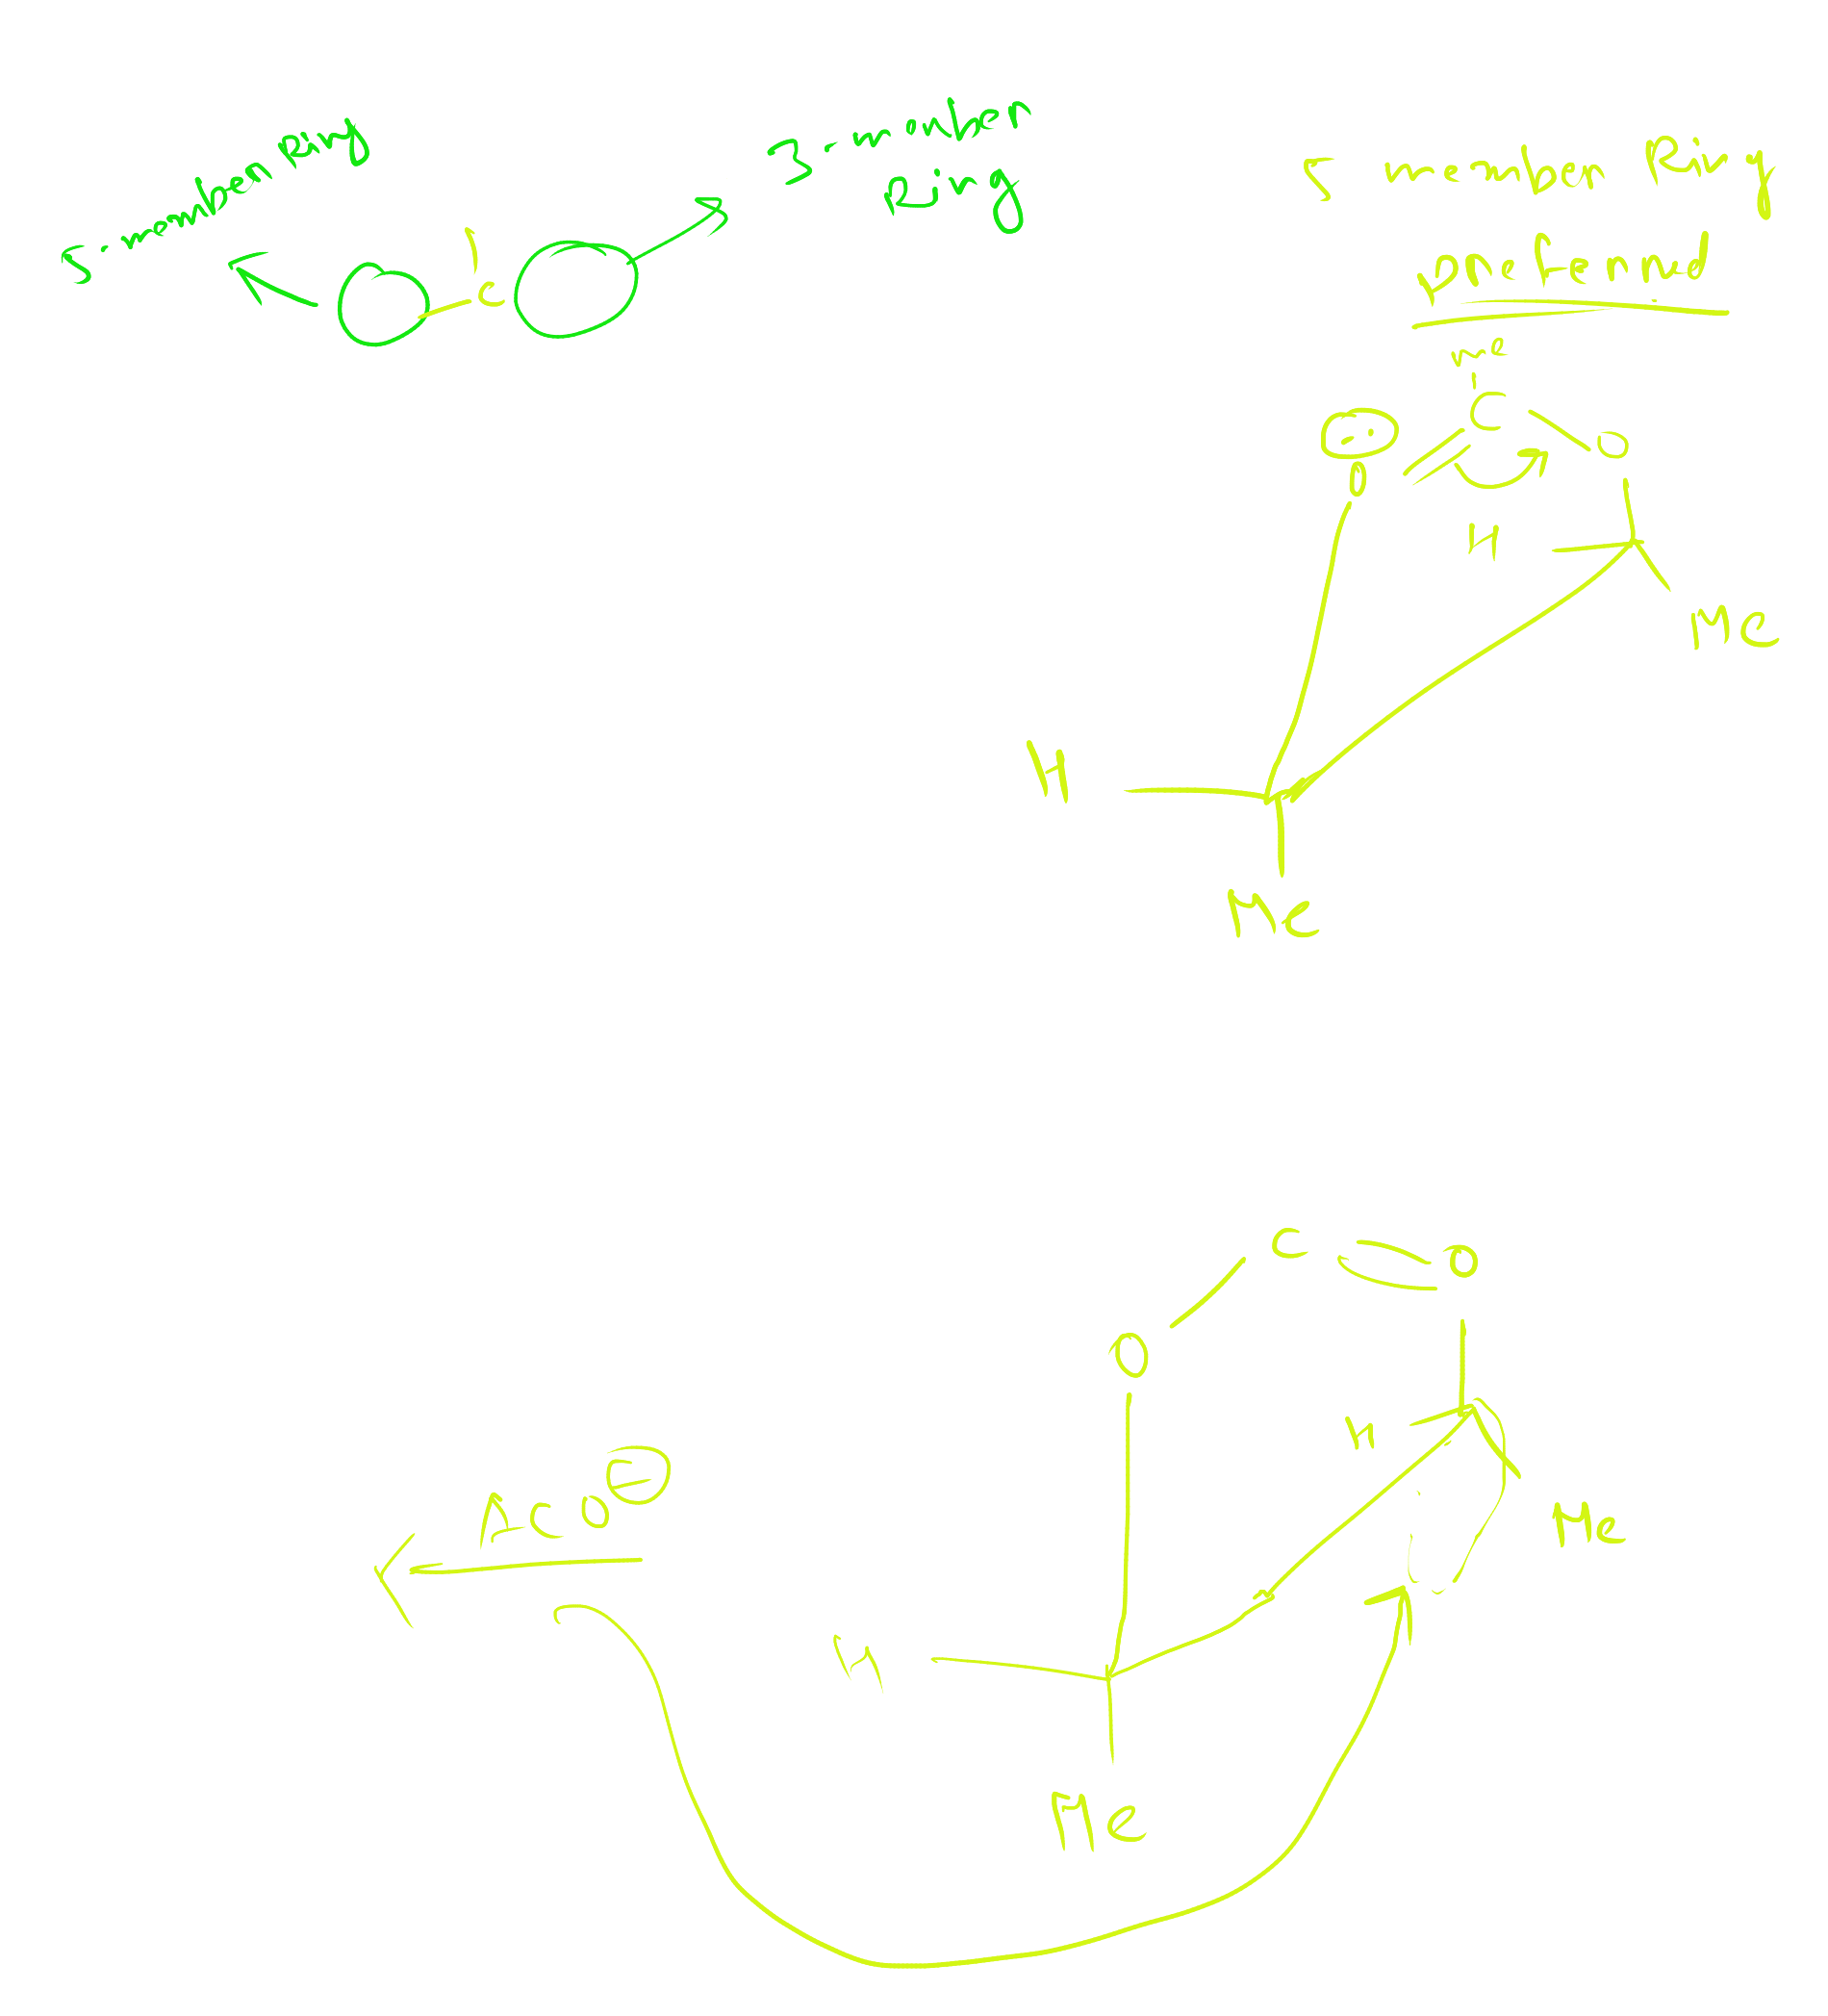 5-member Ring
3-member
ring
5 member Ring
preferred
me
C
O
O
H
Me
H
Me
C
O
O
H
AcO⊖
Me
H
Me